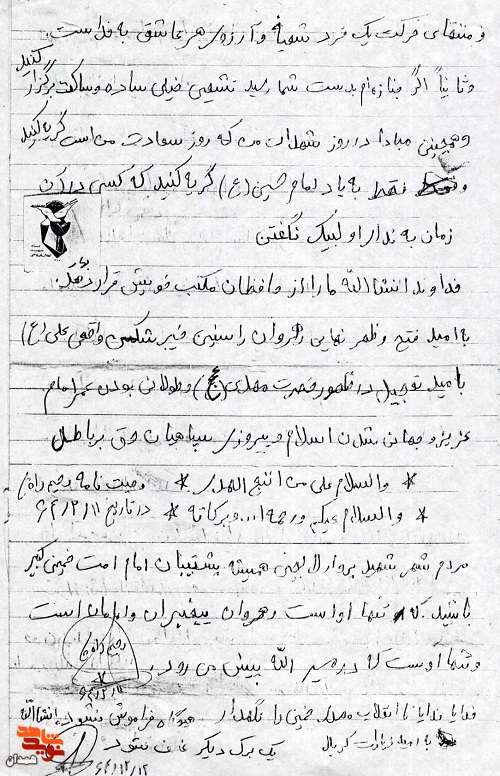 و منتهای حرکت یک فرد شهید و آرزوی هر عاشق به خداست.
و ثانیاً اگر جنازه‌ام بدست شما رسید تشییعی خیلی ساده و ساکت برگزار کنید
و همچنین مبادا در روز شهادت من که روز سعادت من است گریه کنید
و فقط به یاد امام حسین (ع) گریه کنید که کسی در آن
زمان به ندای او لبیک نگفتن
خداوند انشاالله ما را از حافظان مکتب خویش قرار بدهد.
با امید فتح و ظفر نهایی رهروان راستین خیبر شکن واقعی علی (ع)
با امید تعجیل در ظهور حضرت مهدی (عج) و طولانی بودن عمر امام
عزیز و جهانی شدن اسلام و پیروزی سپاهیان حق بر باطل
* والسلام علی من اتبع الهدی * وصیت نامه رحیم
* والسلام علیکم و رحمه ا... و برکاته * در تاریخ ۶۴/۲/۱۱
مردم شهر شهید پرور همیشه پشتیبان امام امت خمینی کبیر
باشید که تنها او است رهروان پیغمبران و امامان است
و تنها اوست که در مسیر الله پیش می رود.
رحیم
۶۴/۲/۱۱
خدایا خدایا تا انقلاب مهدی خمینی را نگهدار هیچگاه فراموش نشود انشاالله
به امید زیارت کربلا یک برگ دیگر
۶۴/۱۲/۱۲
نوید شاهد
همدان